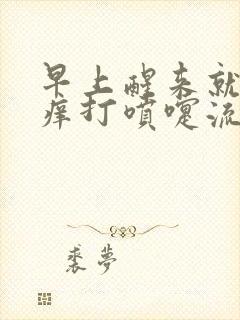 早上醒来就
痒打喷嚏流
裘梦